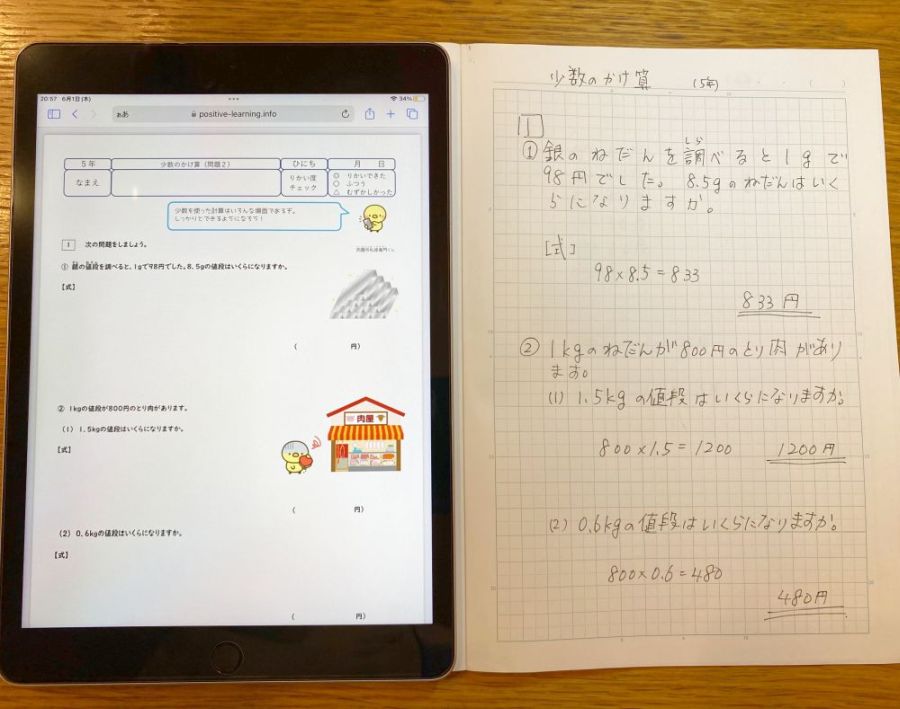 20:57 6月1日(木)
34%
ぁあ
positive-learning.info
5年
少数のかけ算（問題2）
ひにち
月 日
なまえ
りかい度
チェック
◎ りかいできた
○ ふつう
△ むずかしかった
少数を使った計算はいろんな場面であるぞ。
しっかりとできるようになろう！
1 次の問題をしましょう。
① 銀の値段を調べると、1gで98円でした。8.5gの値段はいくらになりますか。
【式】
( 円)
② 1kgの値段が800円のとり肉があります。
(1) 1.5kgの値段はいくらになりますか。
【式】
肉屋
( 円)
(2) 0.6kgの値段はいくらになりますか。
【式】
( 円)
少数のかけ算 (5年)
1
① 銀のねだんを調べると1gで
しら
98円でした。8.5gのねだんはいく
らになりますか。
[式]
98×8.5=833
833円
② 1kgのねだんが800円のとり肉があり
ます。
(1) 1.5kgの値段はいくらになりますか。
800×1.5=1200 1200円
(2) 0.6kgの値段はいくらになりますか。
800×0.6=480
480円